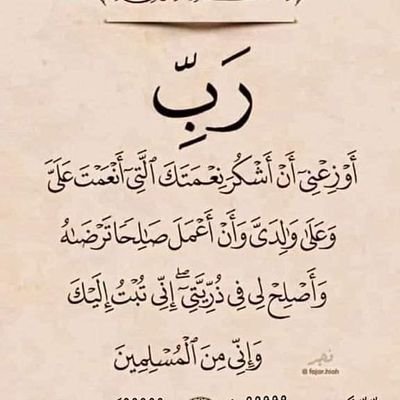 رَبِّ
أَوْزِعْنِىٓ أَنْ أَشْكُرَ نِعْمَتَكَ ٱلَّتِىٓ أَنْعَمْتَ عَلَىَّ
وَعَلَىٰ وَٰلِدَىَّ وَأَنْ أَعْمَلَ صَٰلِحًا تَرْضَىٰهُ
وَأَصْلِحْ لِى فِى ذُرِّيَّتِىٓ ۖ إِنِّى تُبْتُ إِلَيْكَ
وَإِنِّى مِنَ ٱلْمُسْلِمِينَ
فجر
© fajar.hiah